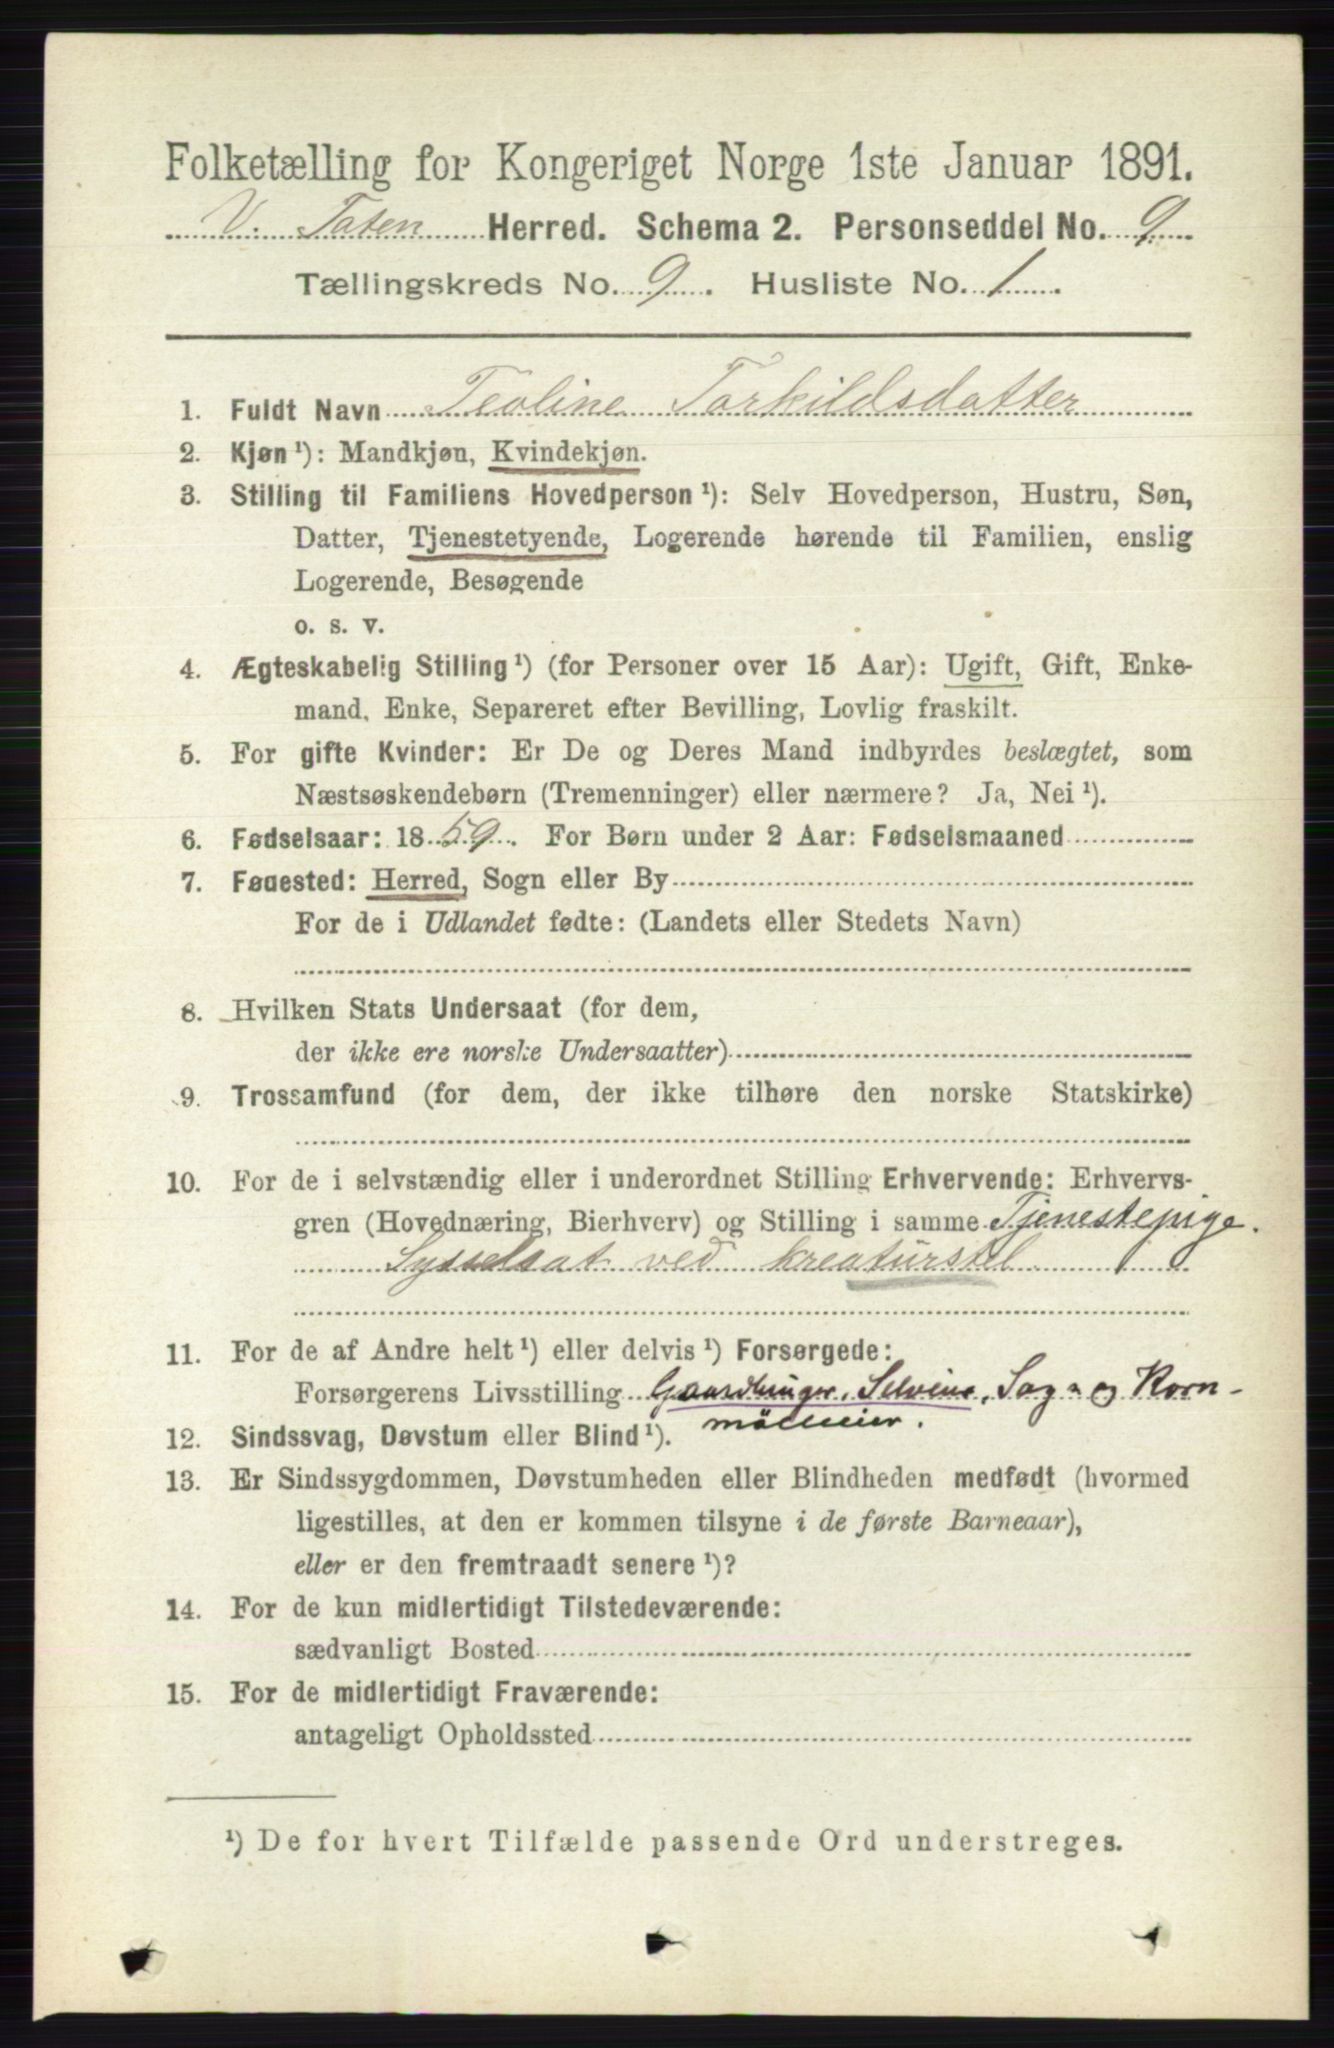 Folketælling for Kongeriget Norge 1ste Januar 1891.
V. Toten Herred. Schema 2. Personseddel No. 9
Tællingskreds No. 9. Husliste No. 1.
1. Fuldt Navn Teoline Torkildsdatter
2. Kjøn ¹): Mandkjøn, Kvindekjøn.
3. Stilling til Familiens Hovedperson ¹): Selv Hovedperson, Hustru, Søn,
Datter, Tjenestetyende, Logerende hørende til Familien, enslig
Logerende, Besøgende
o. s. v.
4. Ægteskabelig Stilling ¹) (for Personer over 15 Aar): Ugift, Gift, Enke-
mand, Enke, Separeret efter Bevilling, Lovlig fraskilt.
5. For gifte Kvinder: Er De og Deres Mand indbyrdes beslægtet, som
Næstsøskendebørn (Tremenninger) eller nærmere? Ja, Nei ¹).
6. Fødselsaar: 1859. For Børn under 2 Aar: Fødselsmaaned
7. Fødested: Herred, Sogn eller By
For de i Udlandet fødte: (Landets eller Stedets Navn)
8. Hvilken Stats Undersaat (for dem,
der ikke ere norske Undersaatter)
9. Trossamfund (for dem, der ikke tilhøre den norske Statskirke)
10. For de i selvstændig eller i underordnet Stilling Erhvervende: Erhvervs-
gren (Hovednæring, Bierhverv) og Stilling i samme Tjenestepige.
Sysselsat ved kreaturstel
11. For de af Andre helt ¹) eller delvis ¹) Forsørgede:
Forsørgerens Livsstilling Gaardbruger, Selveier, Sag- og Korn-
mölleeier.
12. Sindssvag, Døvstum eller Blind ¹).
13. Er Sindssygdommen, Døvstumheden eller Blindheden medfødt (hvormed
ligestilles, at den er kommen tilsyne i de første Barneaar),
eller er den fremtraadt senere ¹)?
14. For de kun midlertidigt Tilstedeværende:
sædvanligt Bosted
15. For de midlertidigt Fraværende:
antageligt Opholdssted
¹) De for hvert Tilfælde passende Ord understreges.